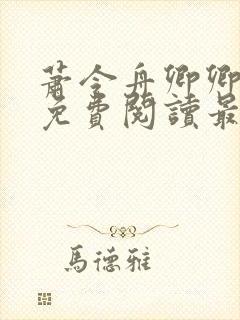 蕭令舟卿卿
免費閱讀最
馬德雅